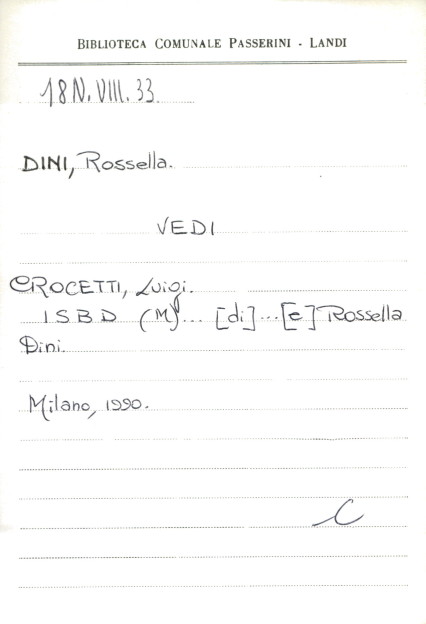 BIBLIOTECA COMUNALE PASSERINI - LANDI
18 N. VIII. 33
DINI, Rossella.
VEDI
CROCETTI, Luigi.
ISBD (M)... [di]...[e] Rossella
Dini.
Milano, 1990.
C